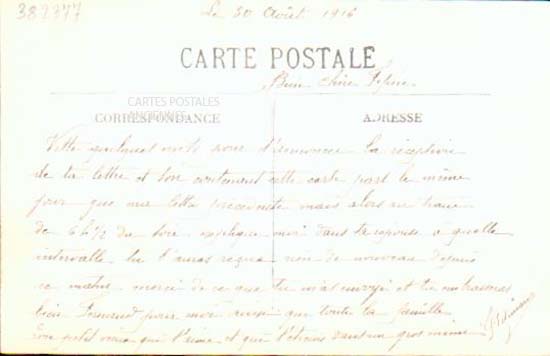 382377
Le 30 Août 1916
CARTE POSTALE
Bien chère
CARTES POSTALES
ANCIENNES
CORRESPONDANCE
ADRESSE
quelques mots pour la réception
de ta lettre et bon cette carte part le même
jour que ma lettre mais alors au train
de 6h½ du soir explique moi dans ta réponse à quelle
intervalle tu l'auras reçue rien de nouveau depuis
ce matin merci de ce que tu m'as envoyé et tu embrasseras
bien pour moi ainsi que toute la famille
Ton petit qui t'aime et que un gros